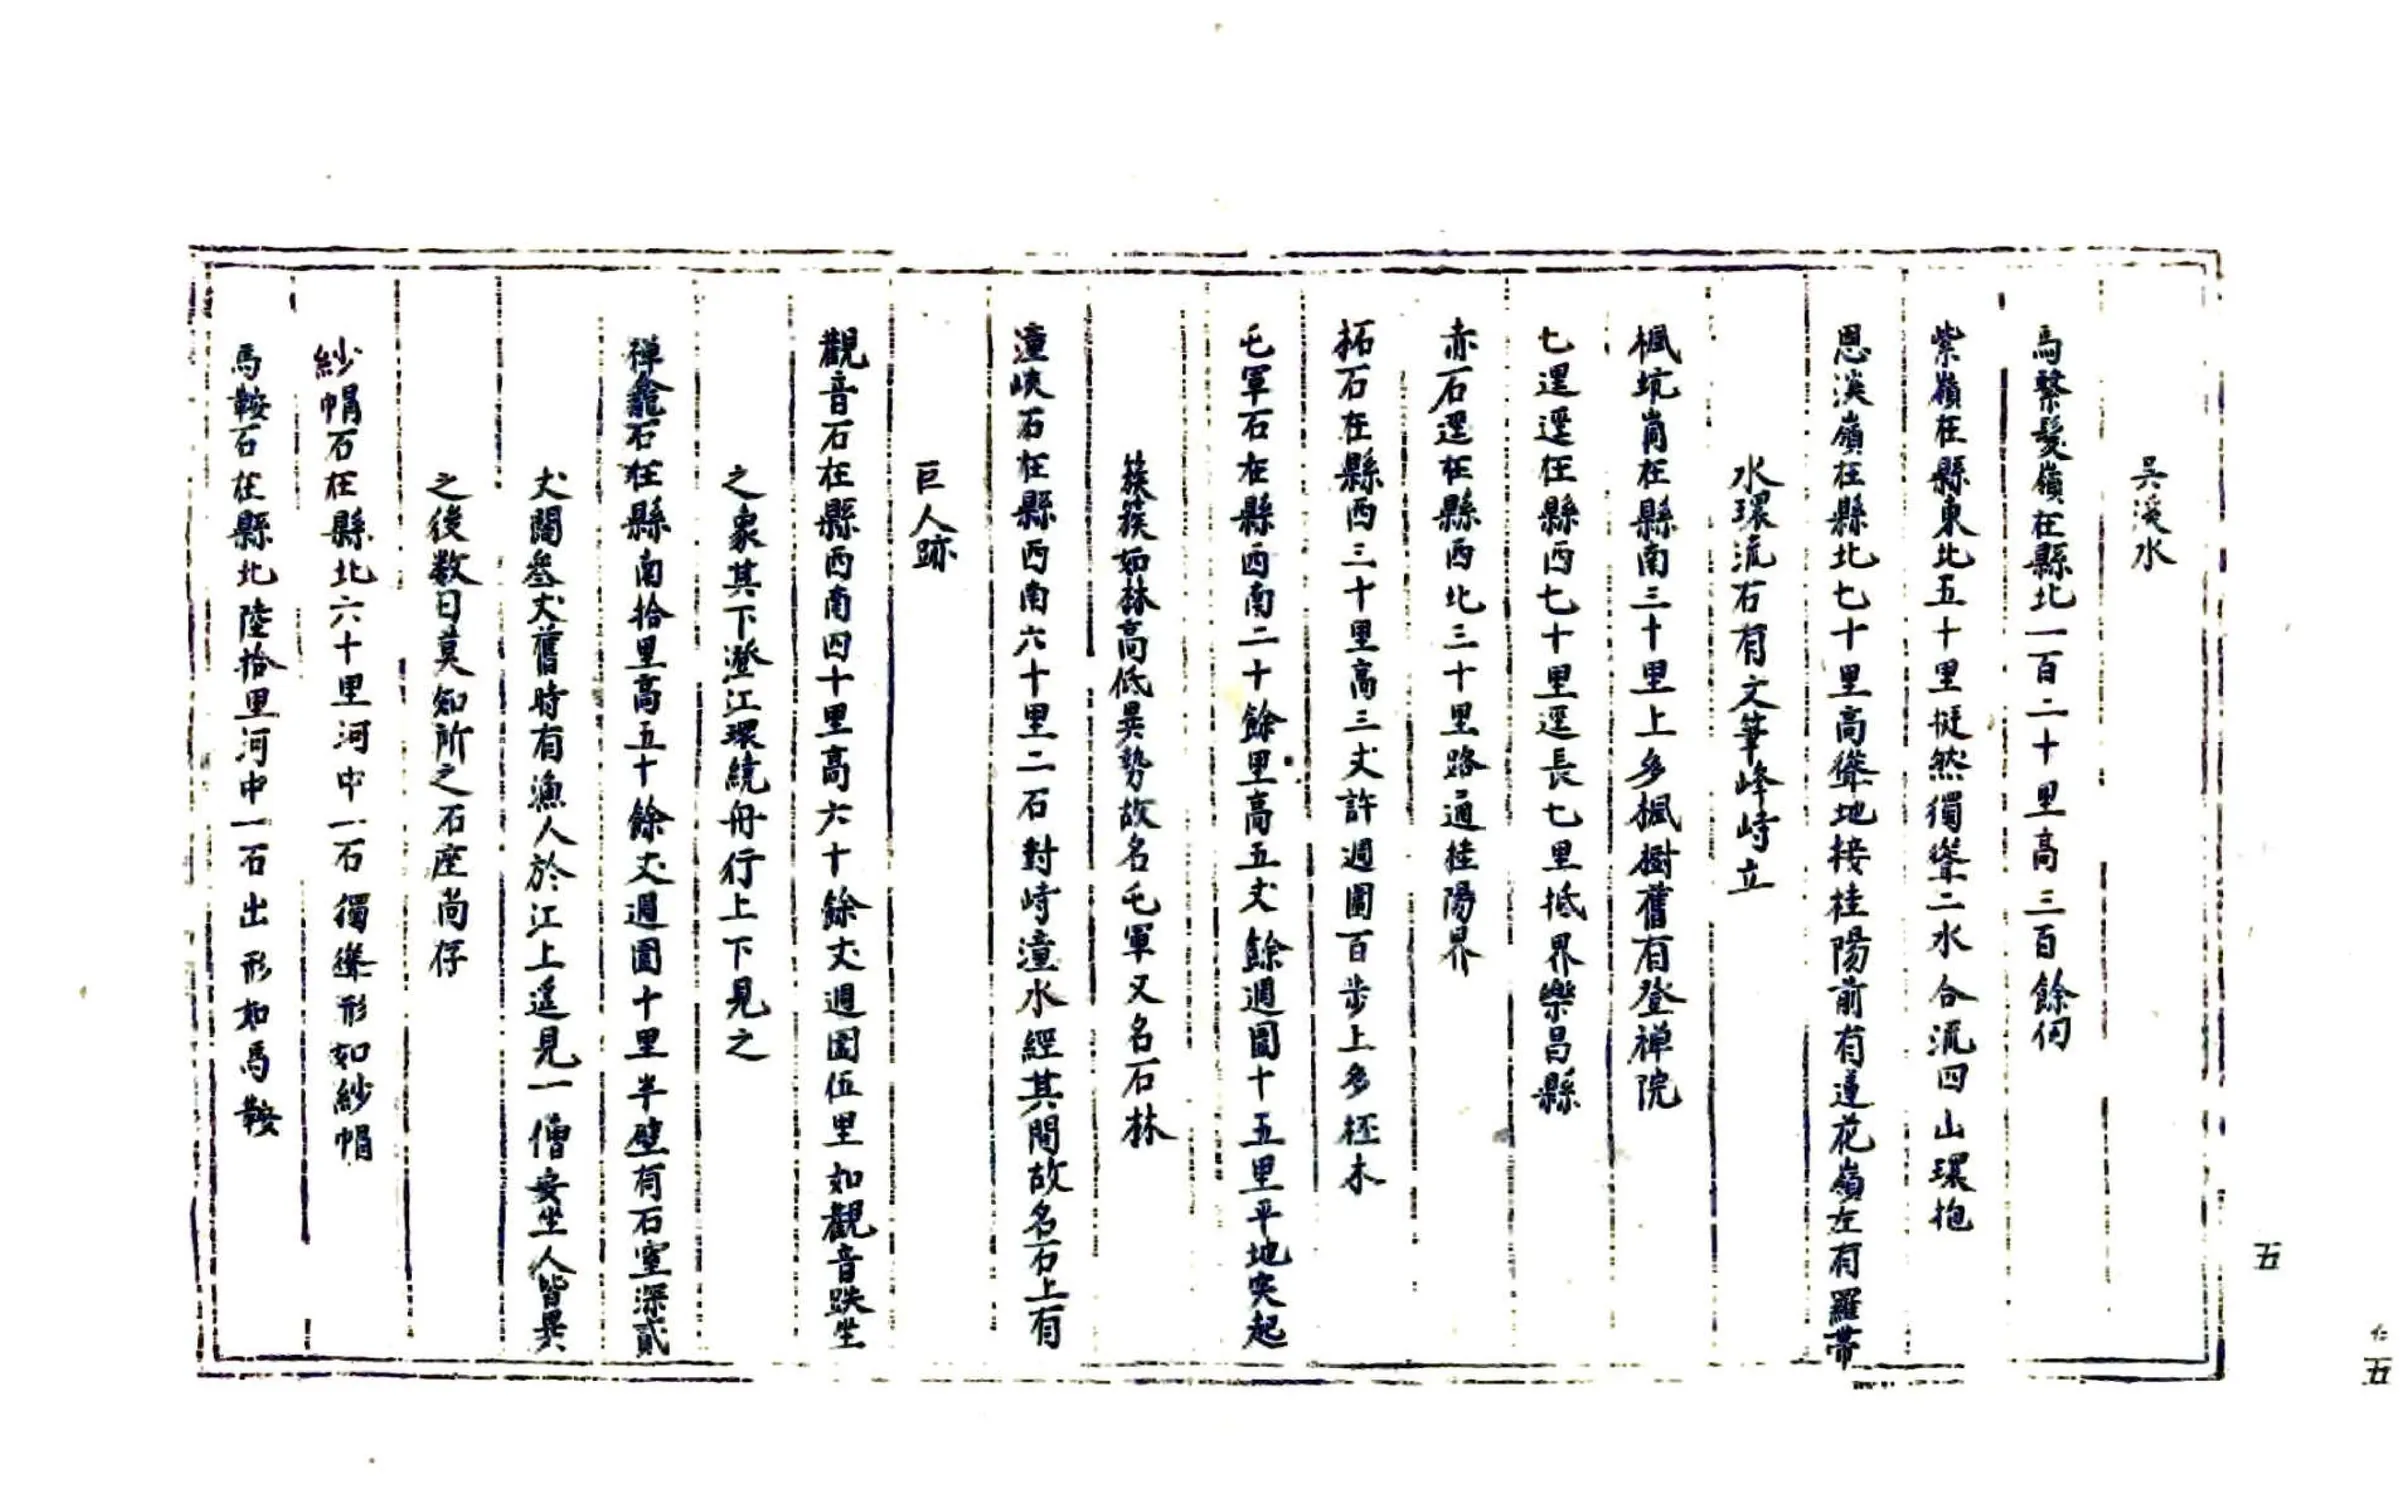 吳溪水
馬繫髮嶺在縣北一百二十里高三百餘仞
紫嶺在縣東北五十里挺然獨聳二水合流四山環抱
恩溪嶺在縣北七十里高聳地接桂陽前有蓮花嶺左有羅帶
水環流右有文筆峰峙立
楓坑崗在縣南三十里上多楓樹舊有登禅院
七里逕在縣西七十里逕長七里抵界樂昌縣
赤石逕在縣西北三十里路通桂陽界
拓石在縣西三十里高三丈許週圍百步上多柸木
屯軍石在縣西南二十餘里高五丈餘週圍十五里平地突起
簇簇如林高低異勢故名屯軍又名石林
潼峽石在縣西南六十里二石對峙潼水經其間故名石上有
巨人跡
觀音石在縣西南四十里高六十餘丈週圍伍里如觀音趺坐
之象其下澄江環繞舟行上下見之
禅龕石在縣南拾里高五十餘丈週圍十里半壁有石室深貳
丈闊叁丈舊時有漁人於江上遥見一僧安坐人皆異
之後数日莫知所之石座尚存
紗帽石在縣北六十里河中一石獨聳形如紗帽
馬鞍石在縣北陸拾里河中一石出形如馬鞍
五
仁
五